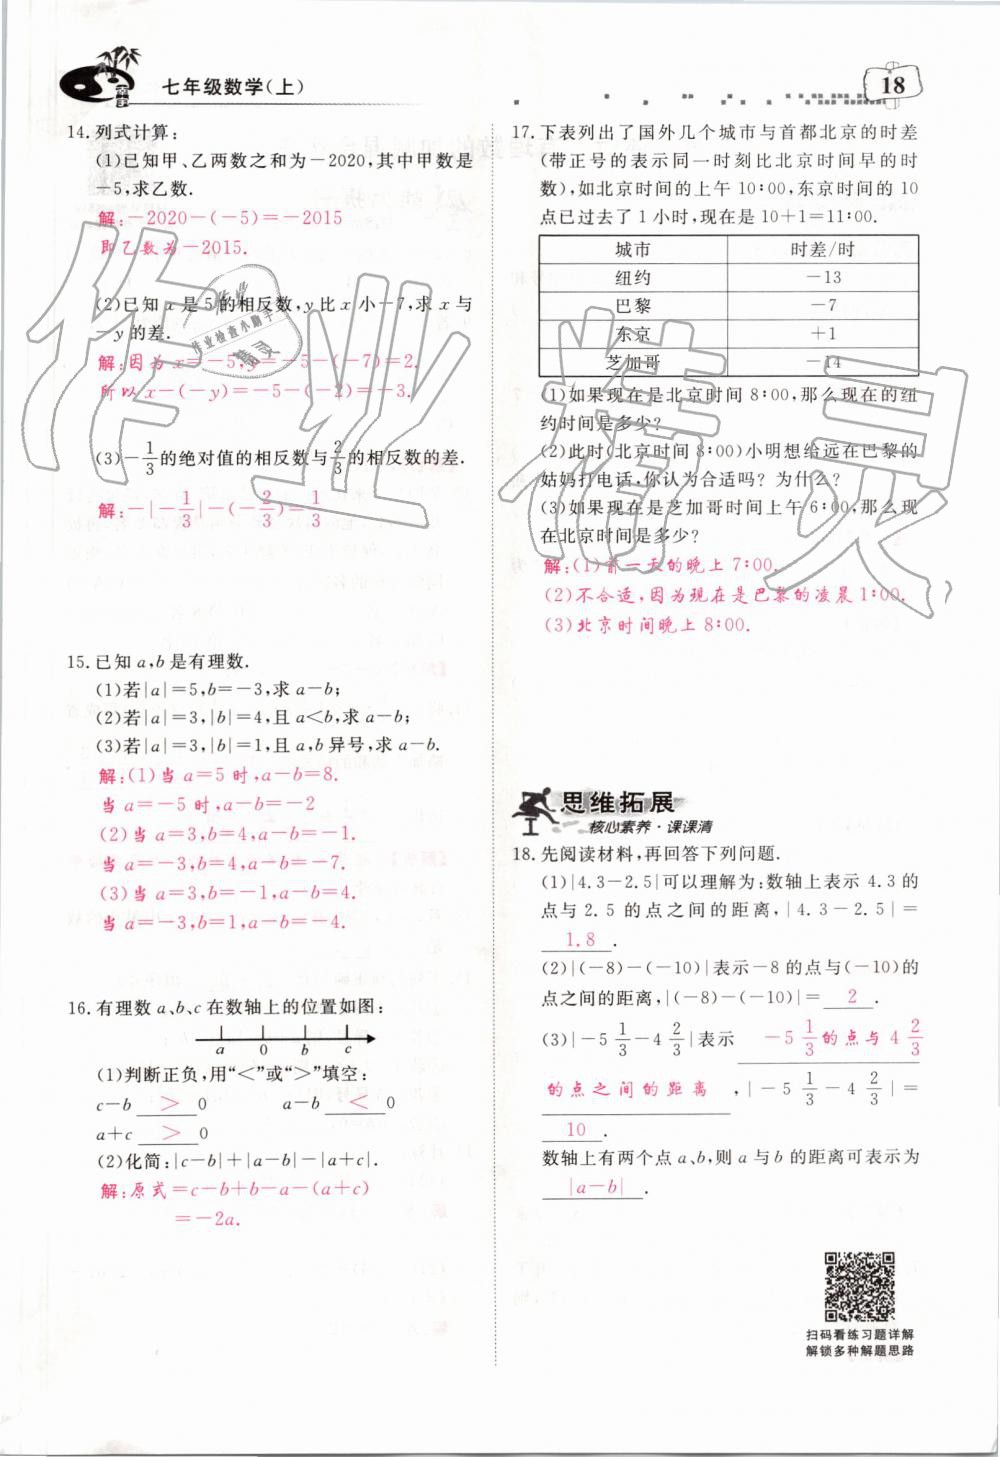 七年级数学(上)
18
14.列式计算:
(1)已知甲、乙两数之和为-2020,其中甲数是
-5,求乙数.
解:-2020-(-5)=-2015
即乙数为-2015.
(2)已知x是5的相反数,y比x小-7,求x与
-y的差.
解:因为x=-5,y=-5-(-7)=2.
所以x-(-y)=-5-(-2)=-3.
(3)-1/3的绝对值的相反数与2/3的相反数的差.
解:-|-1/3|-(-2/3)=1/3
15.已知a,b是有理数.
(1)若|a|=5,b=-3,求a-b;
(2)若|a|=3,|b|=4,且a<b,求a-b;
(3)若|a|=3,|b|=1,且a,b异号,求a-b.
解:(1)当a=5时,a-b=8.
当a=-5时,a-b=-2
(2)当a=3,b=4,a-b=-1.
当a=-3,b=4,a-b=-7.
(3)当a=3,b=-1,a-b=4.
当a=-3,b=1,a-b=-4.
16.有理数a、b、c在数轴上的位置如图:
a 0 b c
(1)判断正负,用“<”或“>”填空:
c-b > 0 a-b < 0
a+c > 0
(2)化简:|c-b|+|a-b|-|a+c|.
解:原式=c-b+b-a-(a+c)
=-2a.
17.下表列出了国外几个城市与首都北京的时差
(带正号的表示同一时刻比北京时间早的时
数),如北京时间的上午10:00,东京时间的10
点已过去了1小时,现在是10+1=11:00.
城市 时差/时
纽约 -13
巴黎 -7
东京 +1
芝加哥 -14
(1)如果现在是北京时间8:00,那么现在的纽
约时间是多少?
(2)此时(北京时间8:00)小明想给远在巴黎的
姑妈打电话,你认为合适吗?为什么?
(3)如果现在是芝加哥时间上午6:00,那么现
在北京时间是多少?
解:(1)前一天的晚上7:00.
(2)不合适,因为现在是巴黎的凌晨1:00.
(3)北京时间晚上8:00.
思维拓展
核心素养·课课清
18.先阅读材料,再回答下列问题.
(1)|4.3-2.5|可以理解为:数轴上表示4.3的
点与2.5的点之间的距离,|4.3-2.5|=
1.8.
(2)|(-8)-(-10)|表示-8的点与(-10)的
点之间的距离,|(-8)-(-10)|=2.
(3)|-5 1/3-4 2/3|表示 -5 1/3的点与4 2/3
的点之间的距离,|-5 1/3-4 2/3|=
10.
数轴上有两个点a、b,则a与b的距离可表示为
|a-b|.
扫码看练习题详解
解锁多种解题思路
作业精灵
作业
作业检查小助手
精灵